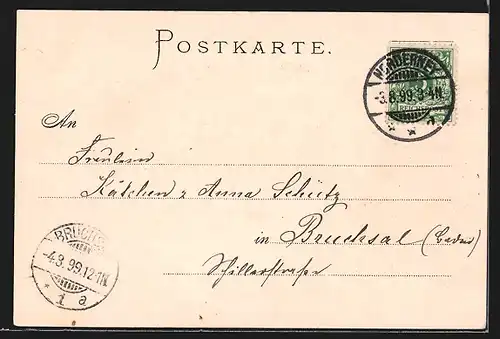 POSTKARTE.
NORDERNEY
-3.8.99.3-4N.
* * a
An
Fräulein
Kätchen & Anna Schütz
in Bruchsal (Baden)
Schillerstraße
BRUCHS
-4.8.99.12-1N.
* 1 a